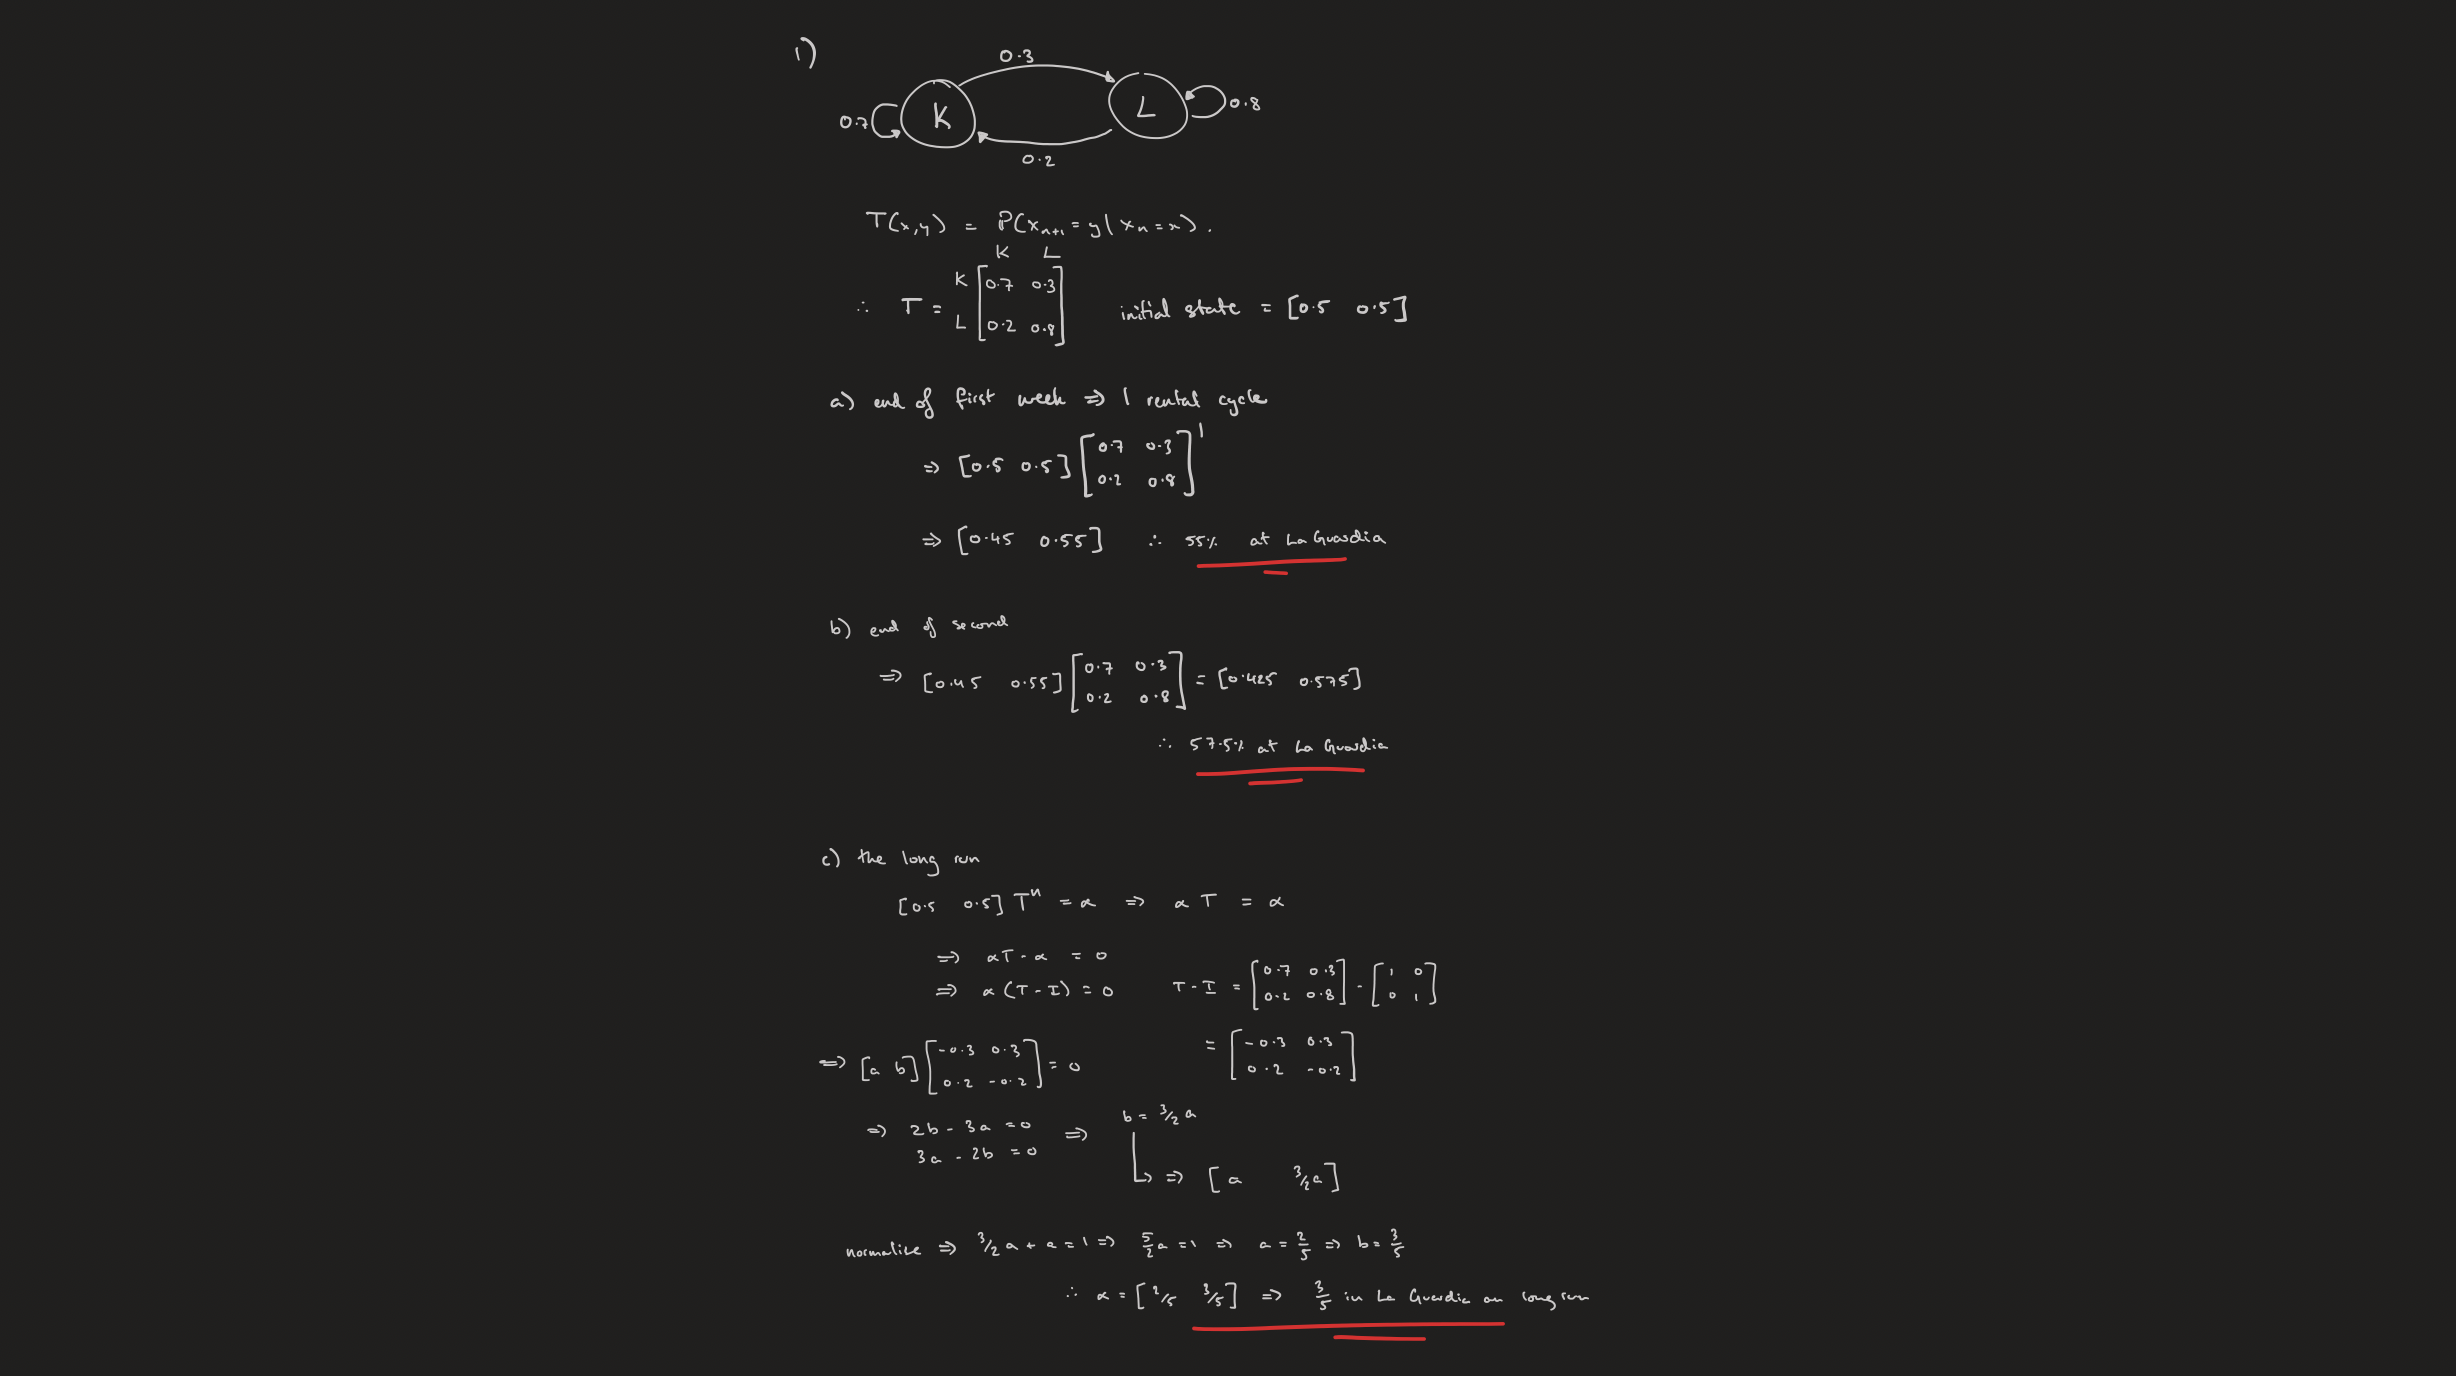 1)
0.3
0.7 K L 0.8
0.2
T(x,y) = P(x_{n+1} = y | x_n = x).
K L
∴ T = K [0.7 0.3
L 0.2 0.8] initial state = [0.5 0.5]
a) end of first week ⇒ 1 rental cycle
⇒ [0.5 0.5] [0.7 0.3
0.2 0.8]^1
⇒ [0.45 0.55] ∴ 55% at La Guardia
b) end of second
⇒ [0.45 0.55] [0.7 0.3
0.2 0.8] = [0.425 0.575]
∴ 57.5% at La Guardia
c) the long run
[0.5 0.5] T^n = α ⇒ α T = α
⇒ αT - α = 0
⇒ α (T - I) = 0 T - I = [0.7 0.3
0.2 0.8] - [1 0
0 1]
= [-0.3 0.3
0.2 -0.2]
⇒ [a b] [-0.3 0.3
0.2 -0.2] = 0
⇒ 2b - 3a = 0 ⇒ b = 3/2 a
3a - 2b = 0
⇒ [a 3/2a]
normalise ⇒ 3/2 a + a = 1 ⇒ 5/2 a = 1 ⇒ a = 2/5 ⇒ b = 3/5
∴ α = [2/5 3/5] ⇒ 3/5 in La Guardia on long run